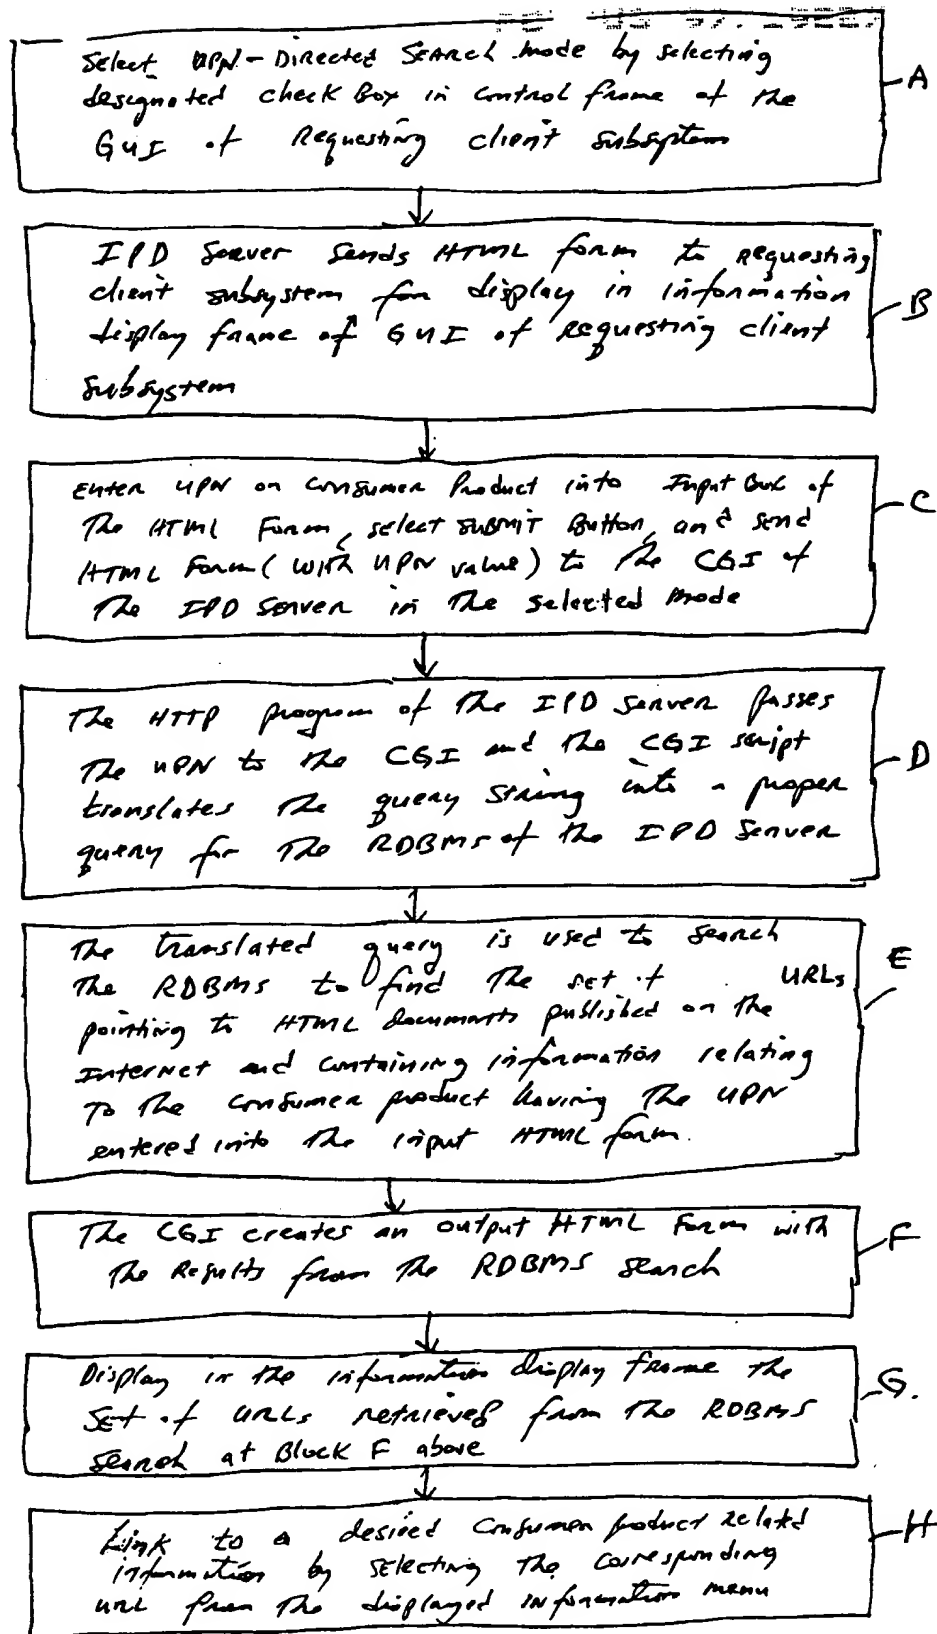 Select UPN-Directed Search mode by selecting
designated check Box in control frame of the
GUI of Requesting client subsystem
A
IPD Server Sends HTML form to requesting
client subsystem for display in information
display frame of GUI of requesting client
subsystem
B
Enter UPN on Consumer Product into Input Box of
The HTML Form, select SUBMIT Button, and send
HTML Form (with UPN value) to the CGI of
The IPD Server in the selected mode
C
The HTTP program of the IPD Server passes
The UPN to the CGI and the CGI script
translates the query string into a proper
query for the RDBMS of the IPD Server
D
The translated query is used to search
The RDBMS to find the set of URLs
pointing to HTML documents published on the
Internet and containing information relating
To the consumer product having the UPN
entered into the input HTML form.
E
The CGI creates an output HTML Form with
The Results from the RDBMS search
F
Display in the information display frame the
Set of URLs retrieved from the RDBMS
Search at Block F above
G.
Link to a desired Consumer product related
information by selecting the corresponding
URL from the displayed information menu
H